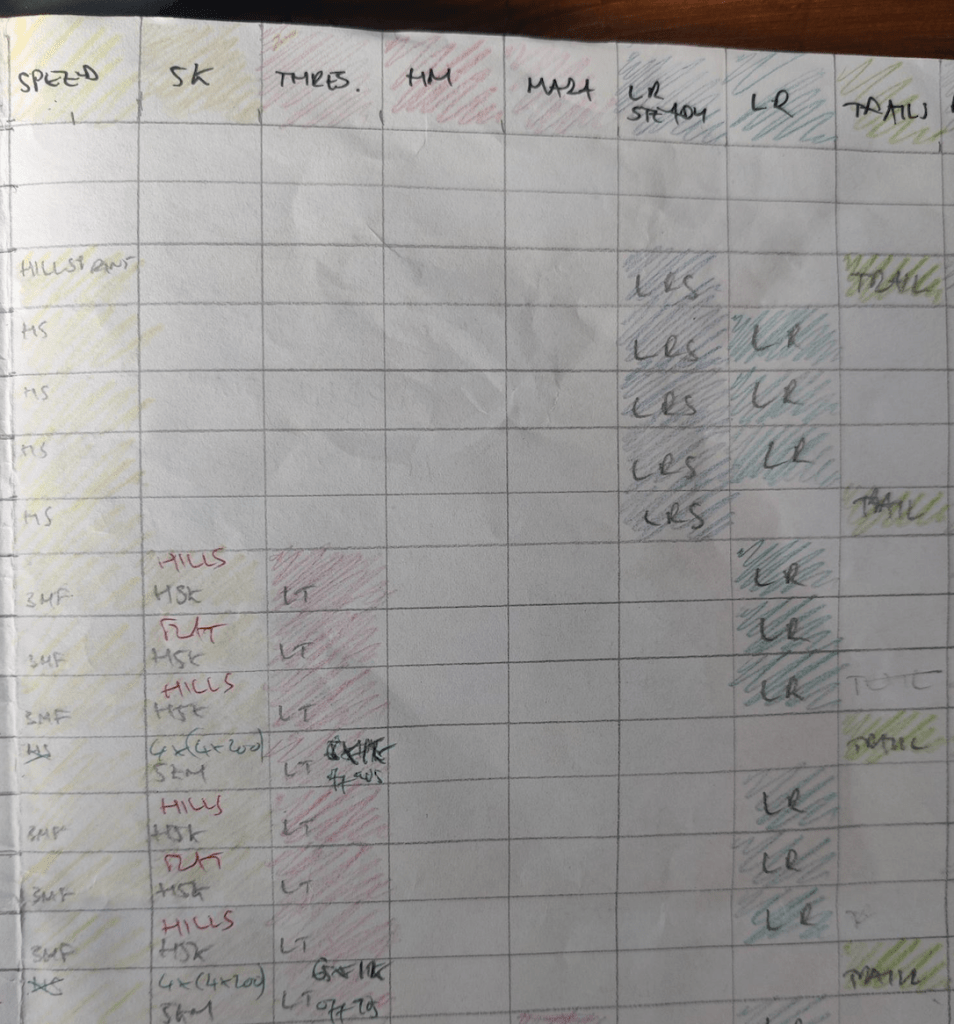 SPEED 5K THRES. HM MARA LR STEADY LR TRAILS
HILLSPRINT LRS TRAIL
HS LRS LR
HS LRS LR
HS LRS LR
HS LRS TRAIL
HILLS
3MF H5K LT LR
FLAT
3MF H5K LT LR
HILLS
3MF H5K LT LR
HS 4x(4x200) TRAIL
5KM LT
HILLS
3MF H5K LT LR
FLAT
3MF H5K LT LR
HILLS
3MF H5K LT LR
4x(4x200) 6x1K TRAIL
5KM LT off 75
LR